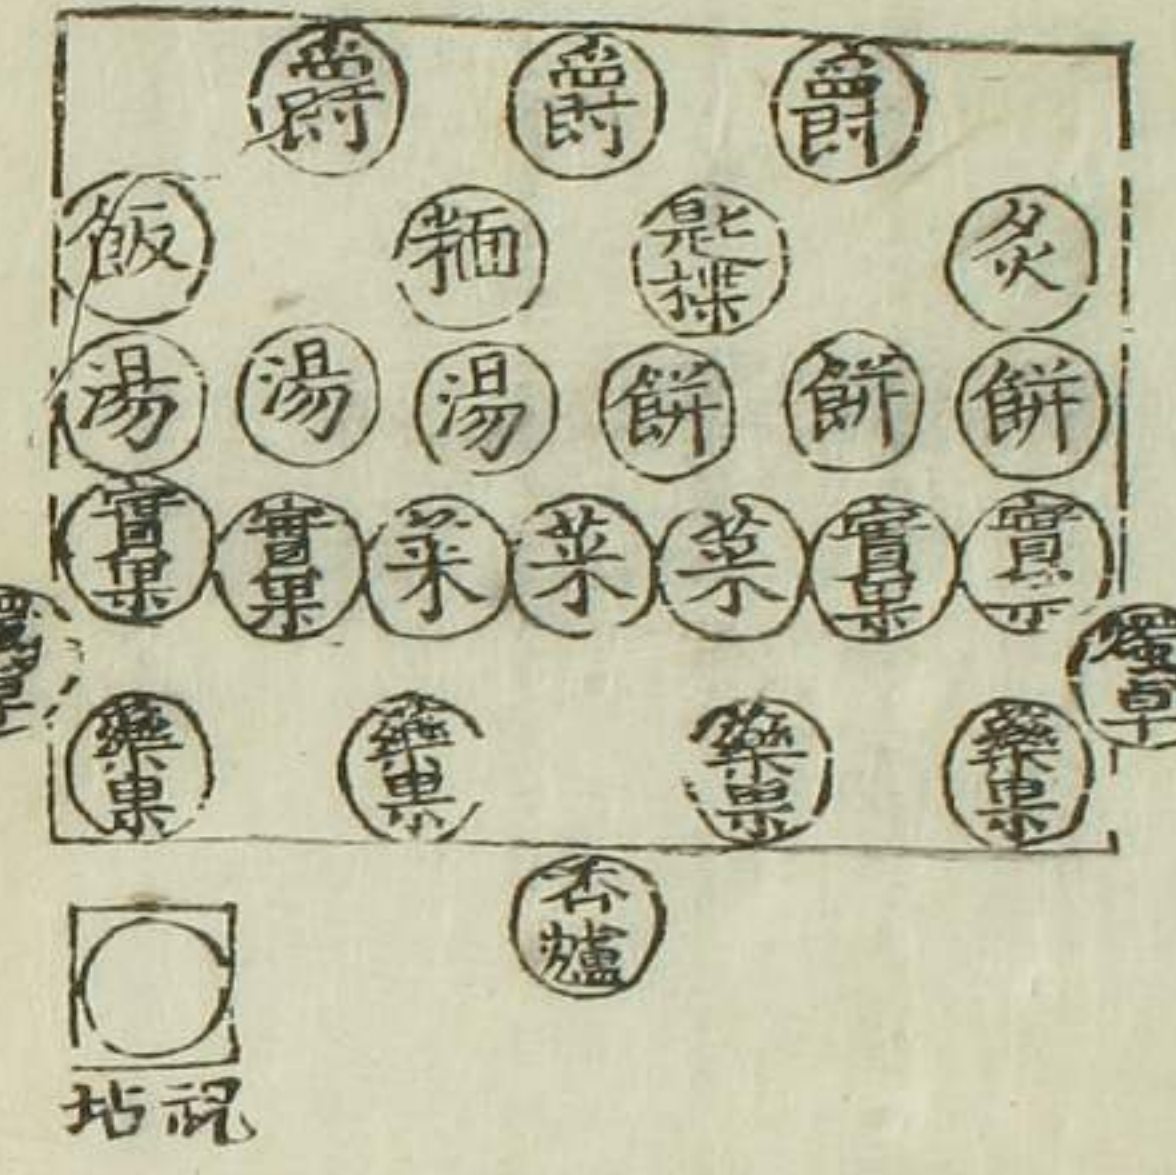 爵 爵 爵
飯 麵 匙楪 炙
湯 湯 湯 餠 餠 餠
實果 實果 菜 菜 菜 實果 實果
燭臺 燭卓
藥果 藥果 藥果 藥果
香爐
祝坫